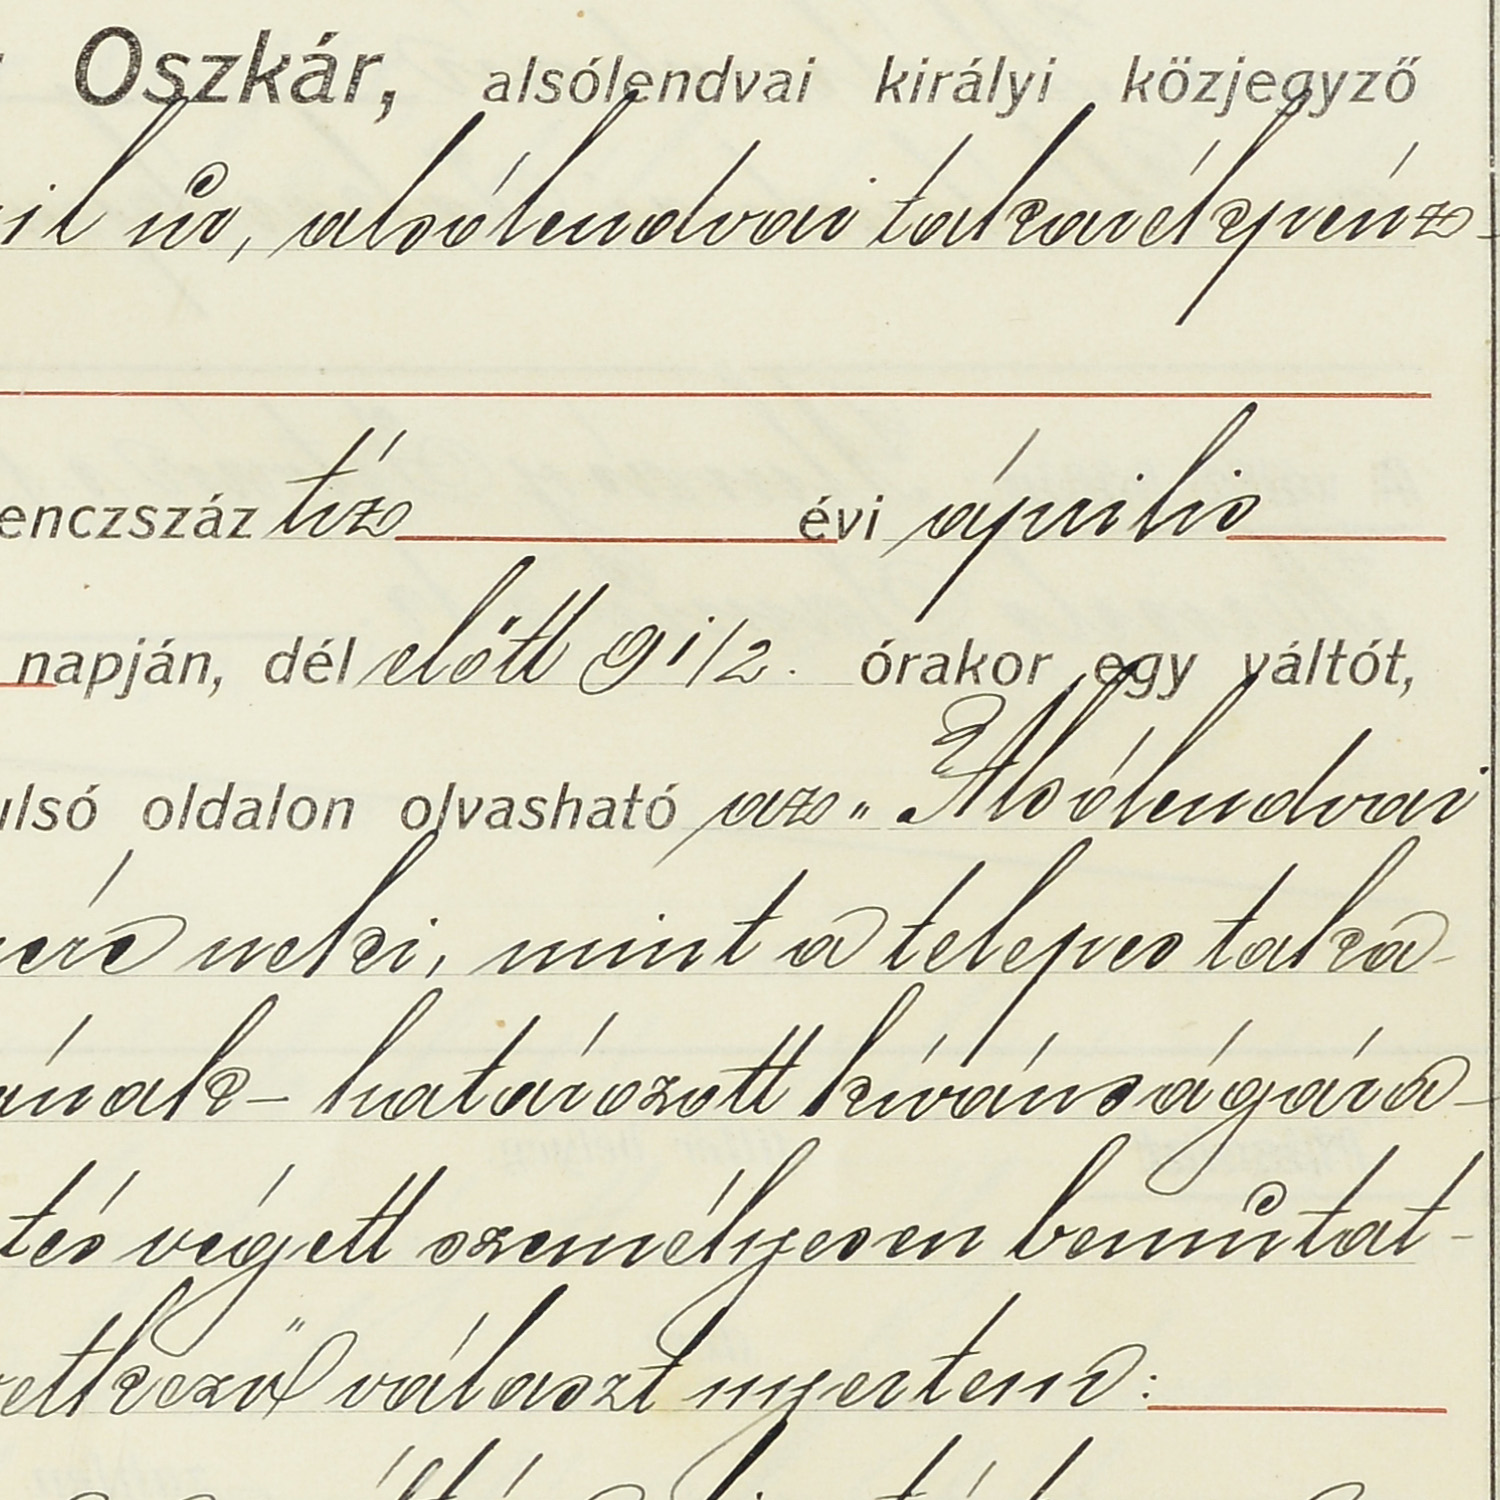 Oszkár, alsólendvai királyi közjegyző
úr, alsólendvai takarékpénz-
enczszáz tiz évi április
napján, dél előtt 9 1/2. órakor egy váltót,
ulsó oldalon olvasható az „Alsólendvai
neki, mint a telepes taka-
ának - határozott kívánságára -
tés végett személyesen bemutat-
etkező választ nyertem: